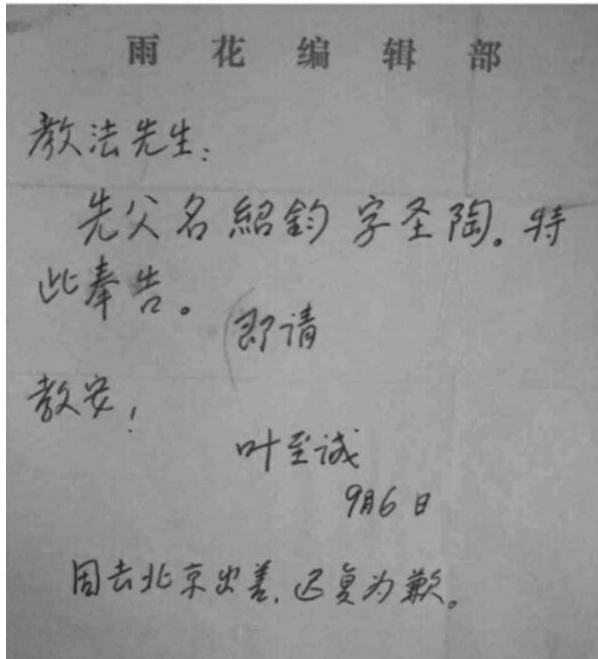 雨花编辑部
教法先生：
先父名紹鈞字圣陶。特
此奉告。
即请
教安！
叶至诚
9月6日
因去北京出差，迟复为歉。